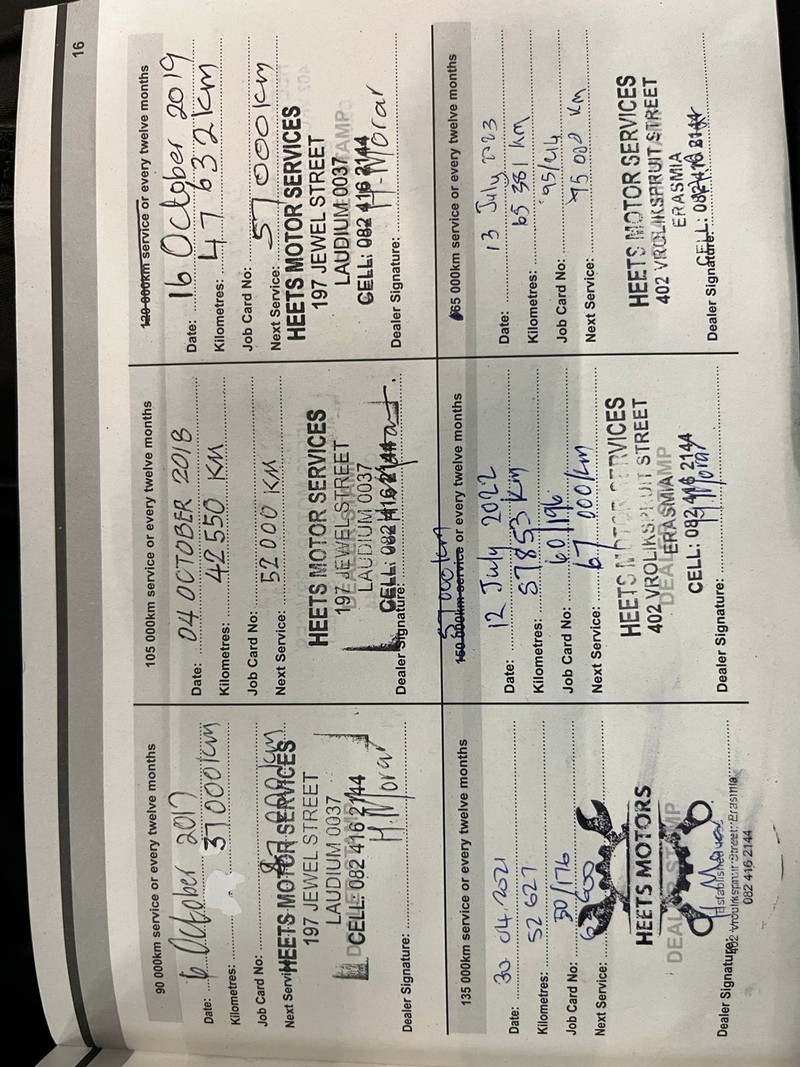 16
90 000km service or every twelve months
Date: 6 October 2017
Kilometres: 37 000 km
Job Card No:
Next Servi
HEETS MOTOR SERVICES
197 JEWEL STREET
LAUDIUM 0037
CELL: 082 416 2144
H. Morar
Dealer Signature:
105 000km service or every twelve months
Date: 04 OCTOBER 2018
Kilometres: 42 550 KM
Job Card No:
Next Service: 52 000 KM
HEETS MOTOR SERVICES
197 JEWEL STREET
LAUDIUM 0037
CELL: 082 416 2144
Dealer Signature:
120 000km service or every twelve months
Date: 16 October 2019
Kilometres: 47 632 km
Job Card No:
Next Service: 57 000 km
HEETS MOTOR SERVICES
197 JEWEL STREET
LAUDIUM 0037
CELL: 082 416 2144
H. Morar
Dealer Signature:
135 000km service or every twelve months
Date: 30 04 2021
Kilometres: 52 627
Job Card No: 50/176
Next Service:
HEETS MOTORS
DEALER STAMP
Established
Dealer Signature:
402 Vrouliksprut Street, Erasmia
082 416 2144
57 000 km
150 000km service or every twelve months
Date: 12 July 2022
Kilometres: 57853 km
Job Card No: 60/196
Next Service: 67 000 km
HEETS MOTOR SERVICES
402 VROLIKSPRUIT STREET
ERASMIA
DEALER STAMP
CELL: 082 416 2144
H Morar
Dealer Signature:
65 000km service or every twelve months
Date: 13 July 2023
Kilometres: 65 381 km
Job Card No: 95/44
Next Service: 75 000 km
HEETS MOTOR SERVICES
402 VROLIKSPRUIT STREET
ERASMIA
CELL: 082 416 2144
Dealer Signature: